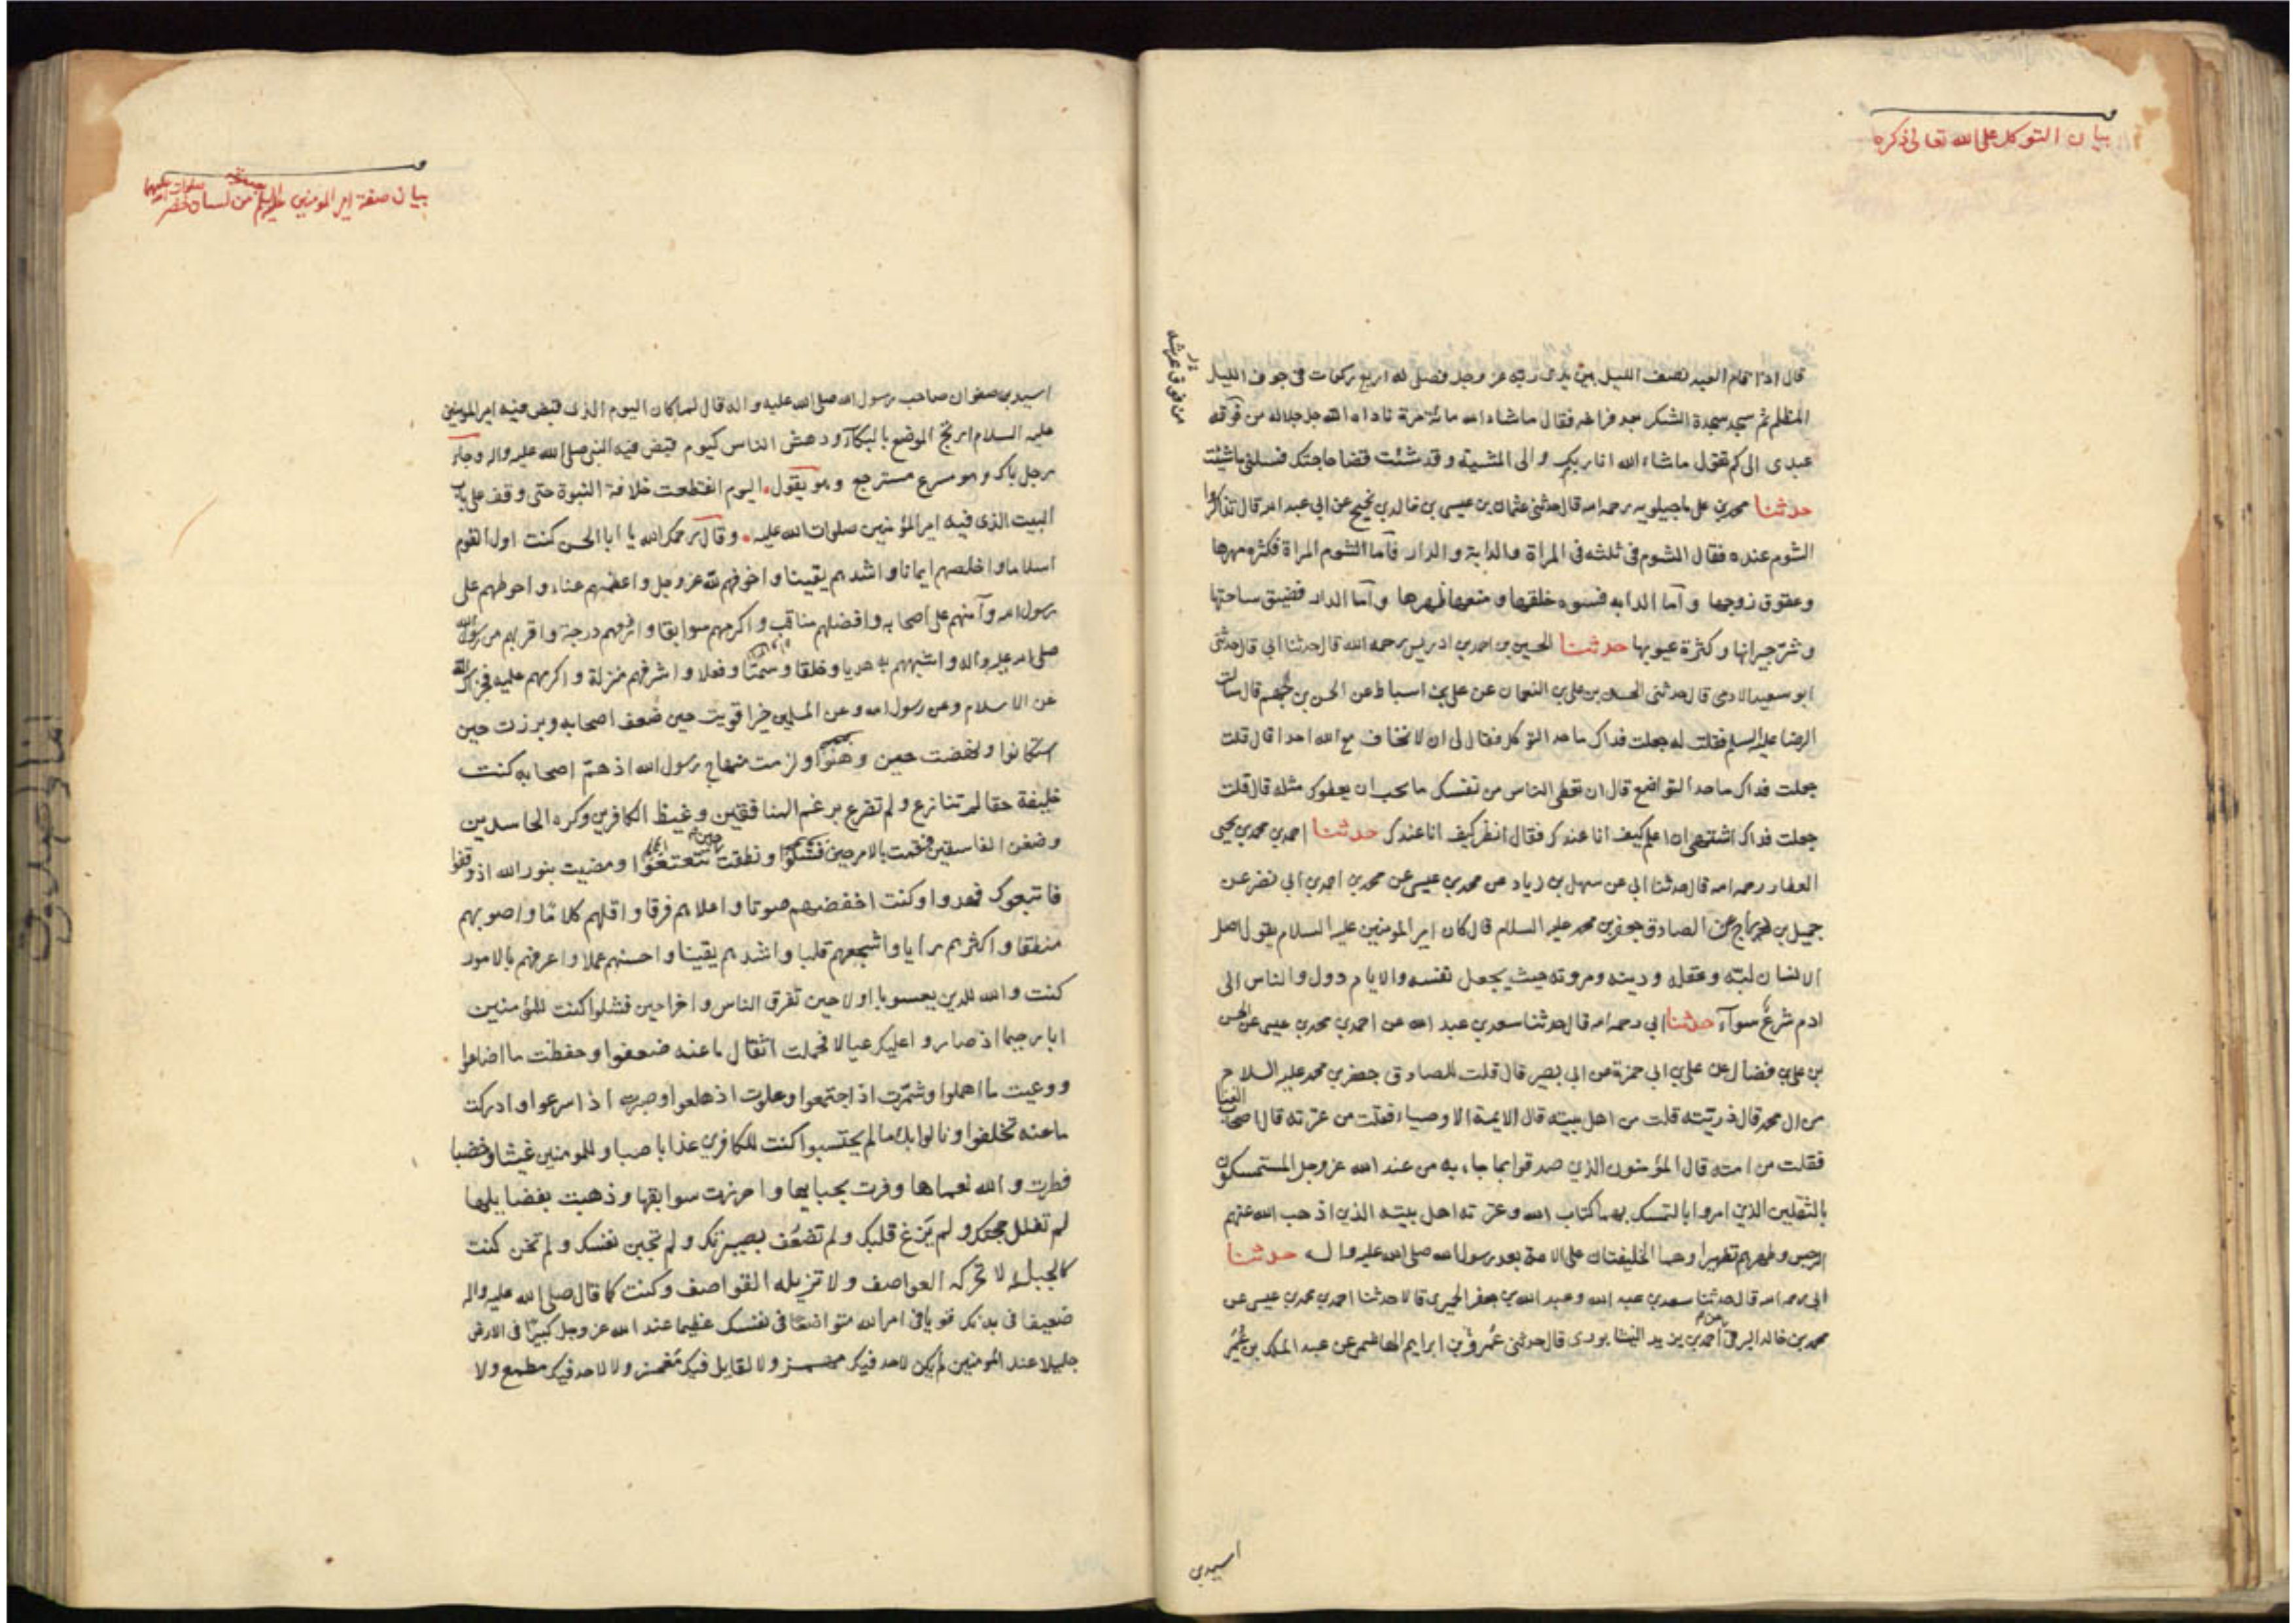 بيان التوكل على الله تعالى ذكره
قال اذا قام العبد نصف الليل بين يدى ربه عز وجل فصلى له اربع ركعات فى جوف الليل
المظلم ثم سجد سجدة الشكر بعد فراغه فقال ماشاء الله مائة مرة ناداه الله جل جلاله من فوقه
من فوق عرشه
عبدى الى كم تقول ماشاء الله انا ربك والى المشية وقد شئت قضا حاجتك فسلنى ما شئت
حدثنا محمد بن على ماجيلويه رحمه الله قال حدثنى عثمان بن عيسى بن خالد بن نجيح عن ابى عبد الله قال تذاكروا
الشوم عنده فقال الشوم فى ثلثه فى المراة والدابة والدار فاما الشوم المراة فكثرة مهرها
وعقوق زوجها واما الدابه فسوء خلقها ومنعها ظهرها واما الدار فضيق ساحتها
وشر جيرانها وكثرة عيوبها حدثنا الحسين بن احمد بن ادريس رحمه الله قال حدثنا ابى قال حدثنى
ابو سعيد الادمى قال حدثنى الحسن بن على بن النعمان عن على بن اسباط عن الحسن بن جهم قال سالت
الرضا عليه السلم فقلت له جعلت فداك ما حد التوكل فقال لى ان لا تخاف مع الله احدا قال قلت
جعلت فداك ما حد التواضع قال ان تعطى الناس من نفسك ما تحب ان يعطوك مثله قال قلت
جعلت فداك اشتهى ان اعلم كيف انا عندك فقال انظر كيف انا عندك حدثنا احمد بن محمد بن يحيى
العطار رحمه الله قال حدثنا ابى عن سهل بن زياد عن محمد بن عيسى عن محمد بن احمد بن ابى نضر عن
جميل بن دراج عن الصادق جعفر بن محمد عليه السلام قال كان امير المومنين عليه السلام يقول اصل
الانسان لبه وعقله ودينه ومروته حيث يجعل نفسه والايام دول والناس الى
ادم شرع سواء حدثنا ابى رحمه الله قال حدثنا سعد بن عبد الله عن احمد بن محمد بن عيسى عن الحسن
بن على بن فضال عن على بن ابى حمزة عن ابى بصير قال قلت للصادق جعفر بن محمد عليه السلام
من ال محمد قال ذريته قلت من اهل بيته قال الايمة الاوصياء فقلت من عترته قال اصحاب العبا
فقلت من امته قال المؤمنون الذين صدقوا بما جاء به من عند الله عز وجل المستمسكون
بالثقلين الذين امروا بالتمسك بهما كتاب الله وعترته اهل بيته الذين اذهب الله عنهم
الرجس وطهرهم تطهيرا وهما الخليفتان على الامة بعد رسول الله صلى الله عليه واله حدثنا
ابى رحمه الله قال حدثنا سعد بن عبد الله وعبد الله بن جعفر الحميرى قالا حدثنا احمد بن محمد بن عيسى عن
محمد بن خالد البرقى عن احمد بن يزيد النيشابورى قال حدثنى عمرو بن ابراهيم الهاشمى عن عبد الملك بن عمير
اسيد بن
بيان صفة امير المومنين عليه السلم من لسان خضر
اسيد بن صفوان صاحب رسول الله صلى الله عليه واله قال لما كان اليوم الذى قبض فيه امير المومنين
عليه السلام ارتج الموضع بالبكاء ودهش الناس كيوم قبض فيه النبى صلى الله عليه واله وجاء
رجل باك وهو مسرع مسترجع وهو يقول اليوم انقطعت خلافة النبوة حتى وقف على باب
البيت الذى فيه امير المؤمنين صلوات الله عليه وقال رحمك الله يا ابا الحسن كنت اول القوم
اسلاما واخلصهم ايمانا واشدهم يقينا واخوفهم لله عز وجل واعظمهم عناء واحوطهم على
رسول الله وآمنهم على اصحابه وافضلهم مناقب واكرمهم سوابقا وارفعهم درجة واقربهم من رسول الله
صلى الله عليه واله واشبههم به هديا وخلقا وسمتا وفعلا واشرفهم منزلة واكرمهم عليه فجزاك الله
عن الاسلام وعن رسول الله وعن المسلمين خيرا قويت حين ضعف اصحابه وبرزت حين
استكانوا ونهضت حين وهنوا ولزمت منهاج رسول الله اذ هم اصحابه كنت
خليفة حقا لم تنازع ولم تضرع برغم المنافقين وغيظ الكافرين وكره الحاسدين
وضغن الفاسقين فقمت بالامر حين فشلوا ونطقت حين تتعتعوا ومضيت بنور الله اذ وقفوا
فاتبعوك فهدوا وكنت اخفضهم صوتا واعلاهم فرقا واقلهم كلاما واصوبهم
منطقا واكثرهم رايا واشجعهم قلبا واشدهم يقينا واحسنهم عملا واعرفهم بالامور
كنت والله للدين يعسوبا اولا حين تفرق الناس واخرا حين فشلوا كنت للمؤمنين
ابا رحيما اذ صاروا عليك عيالا فحملت اثقال ما عنه ضعفوا وحفظت ما اضاعوا
ووعيت ما اهملوا وشمرت اذ اجتمعوا وعلوت اذ هلعوا وصبرت اذا سرعوا وادركت
ما عنه تخلفوا ونالوا بك ما لم يحتسبوا كنت للكافرين عذابا صبا وللمومنين غيثا وخصبا
فطرت والله نعماها وفزت بحبايها واحرزت سوابقها وذهبت بفضايلها
لم تفلل حجتك ولم يزغ قلبك ولم تضعف بصيرتك ولم تجبن نفسك ولم تخن كنت
كالجبل لا تحركه العواصف ولا تزيله القواصف وكنت كما قال صلى الله عليه واله
ضعيفا فى بدنك قويا فى امر الله متواضعا فى نفسك عظيما عند الله عز وجل كبيرا فى الارض
جليلا عند المومنين لم يكن لاحد فيك مهمز ولا لقايل فيك مغمز ولا لاحد فيك مطمع ولا